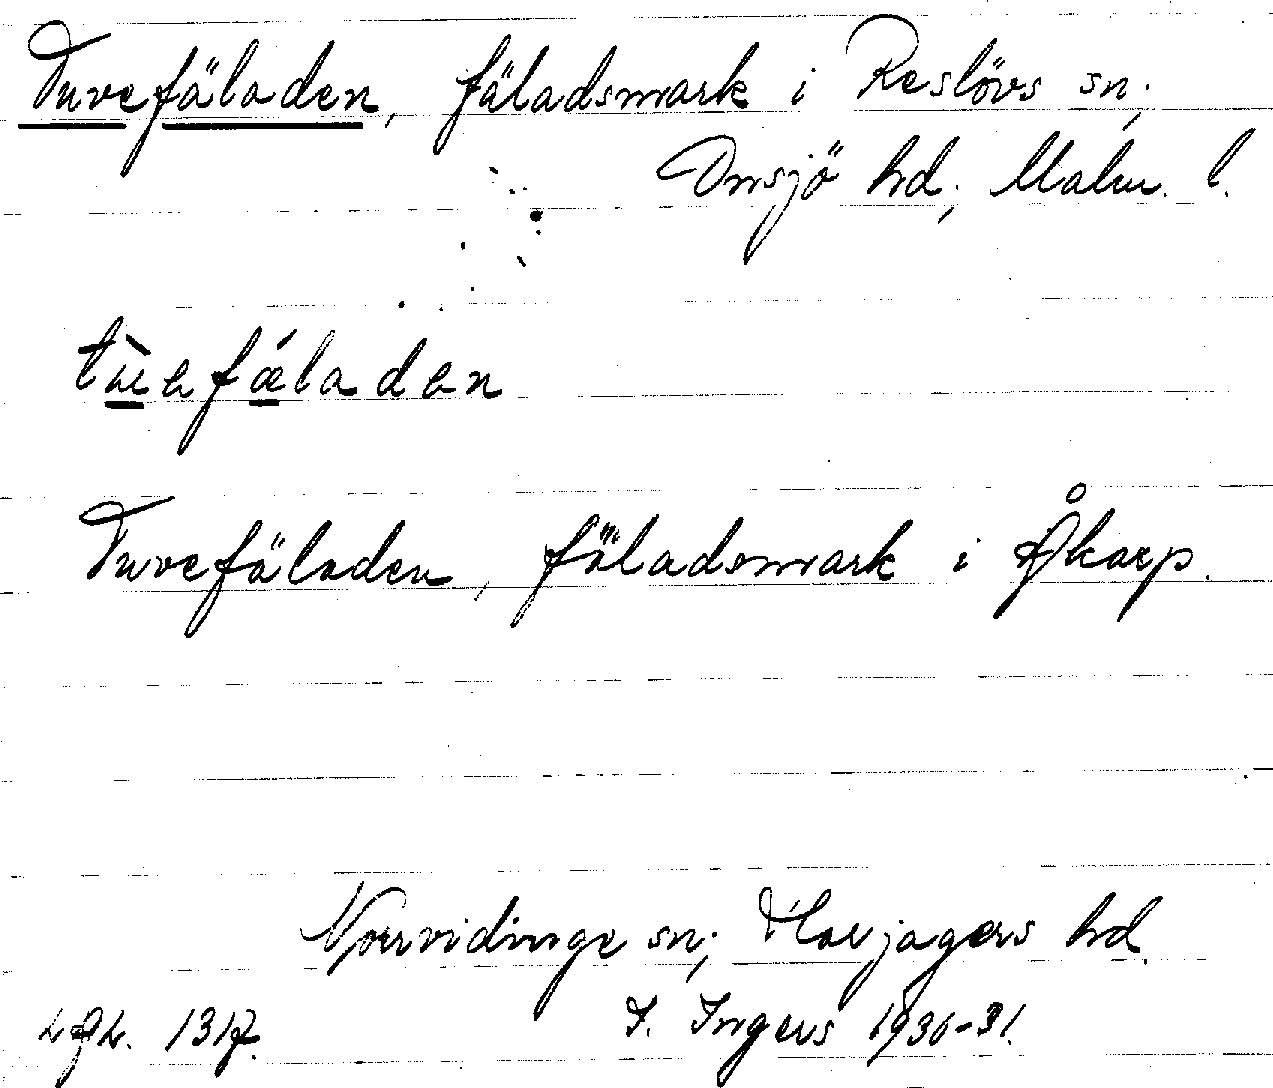 Tuvefäladen, fäladsmark i Reslövs sn;
Onsjö hd, Malm. l.
tùefǽladen
Tuvefäladen, fäladsmark i Åkarp.
Norrvidinge sn; Harjagers hd.
LAL. 1317.
I. Ingers 1930-31.